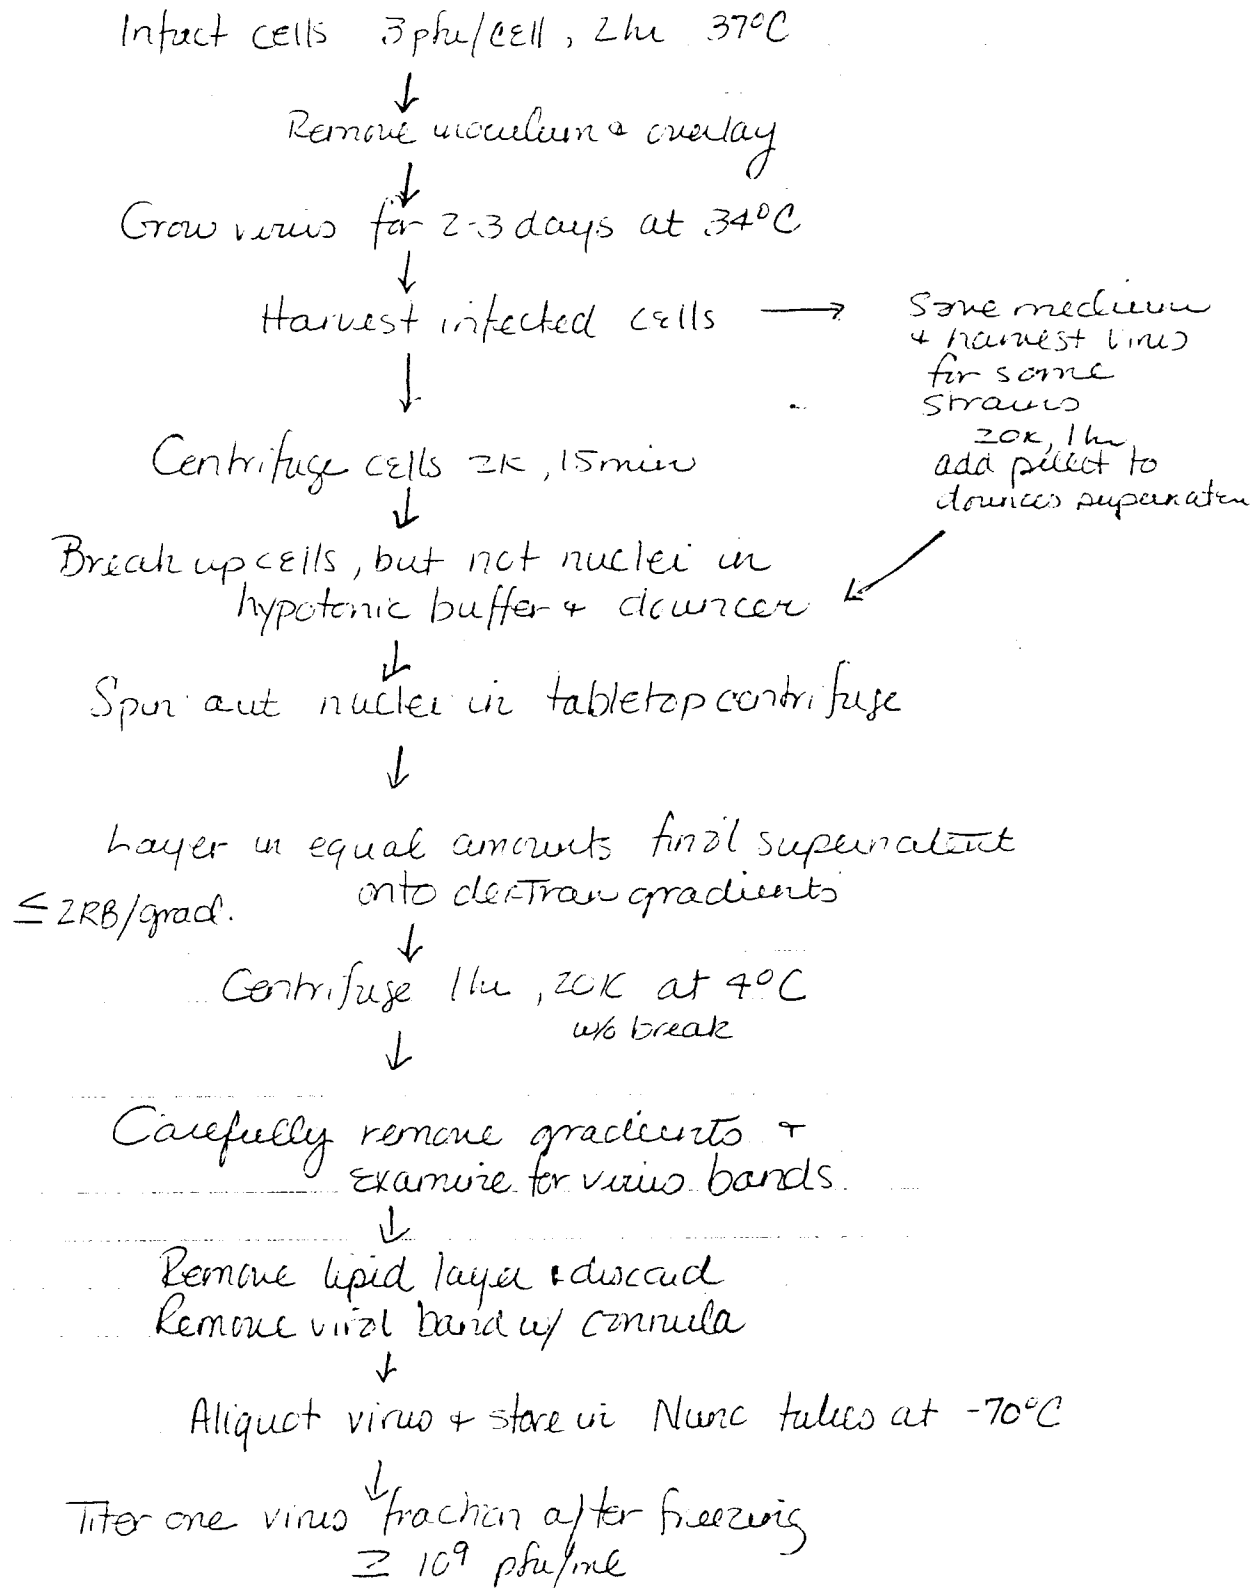 Infect cells 3 pfu/cell, 2 hr 37°C
↓
Remove inoculum + overlay
↓
Grow virus for 2-3 days at 34°C
↓
Harvest infected cells →
Save medium
+ harvest virus
for some
strains
20K, 1 hr
add pellet to
dounces supernatan
↓
Centrifuge cells 2K, 15 min
↓
Break up cells, but not nuclei in
hypotonic buffer + douncer
↓
Spin out nuclei in tabletop centrifuge
↓
Layer in equal amounts final supernatent
onto dextran gradients
≤ 2RB/grad.
↓
Centrifuge 1 hr, 20K at 4°C
w/o break
↓
Carefully remove gradients +
examine for virus bands.
↓
Remove lipid layer + discard
Remove viral band w/ cannula
↓
Aliquot virus + store in Nunc tubes at -70°C
↓
Titer one virus fraction after freezing
≥ 10⁹ pfu/ml